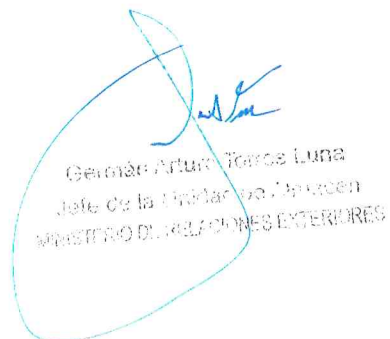 Germán Arturo Torres Luna
Jefe de la Unidad de Almacén
MINISTERIO DE RELACIONES EXTERIORES